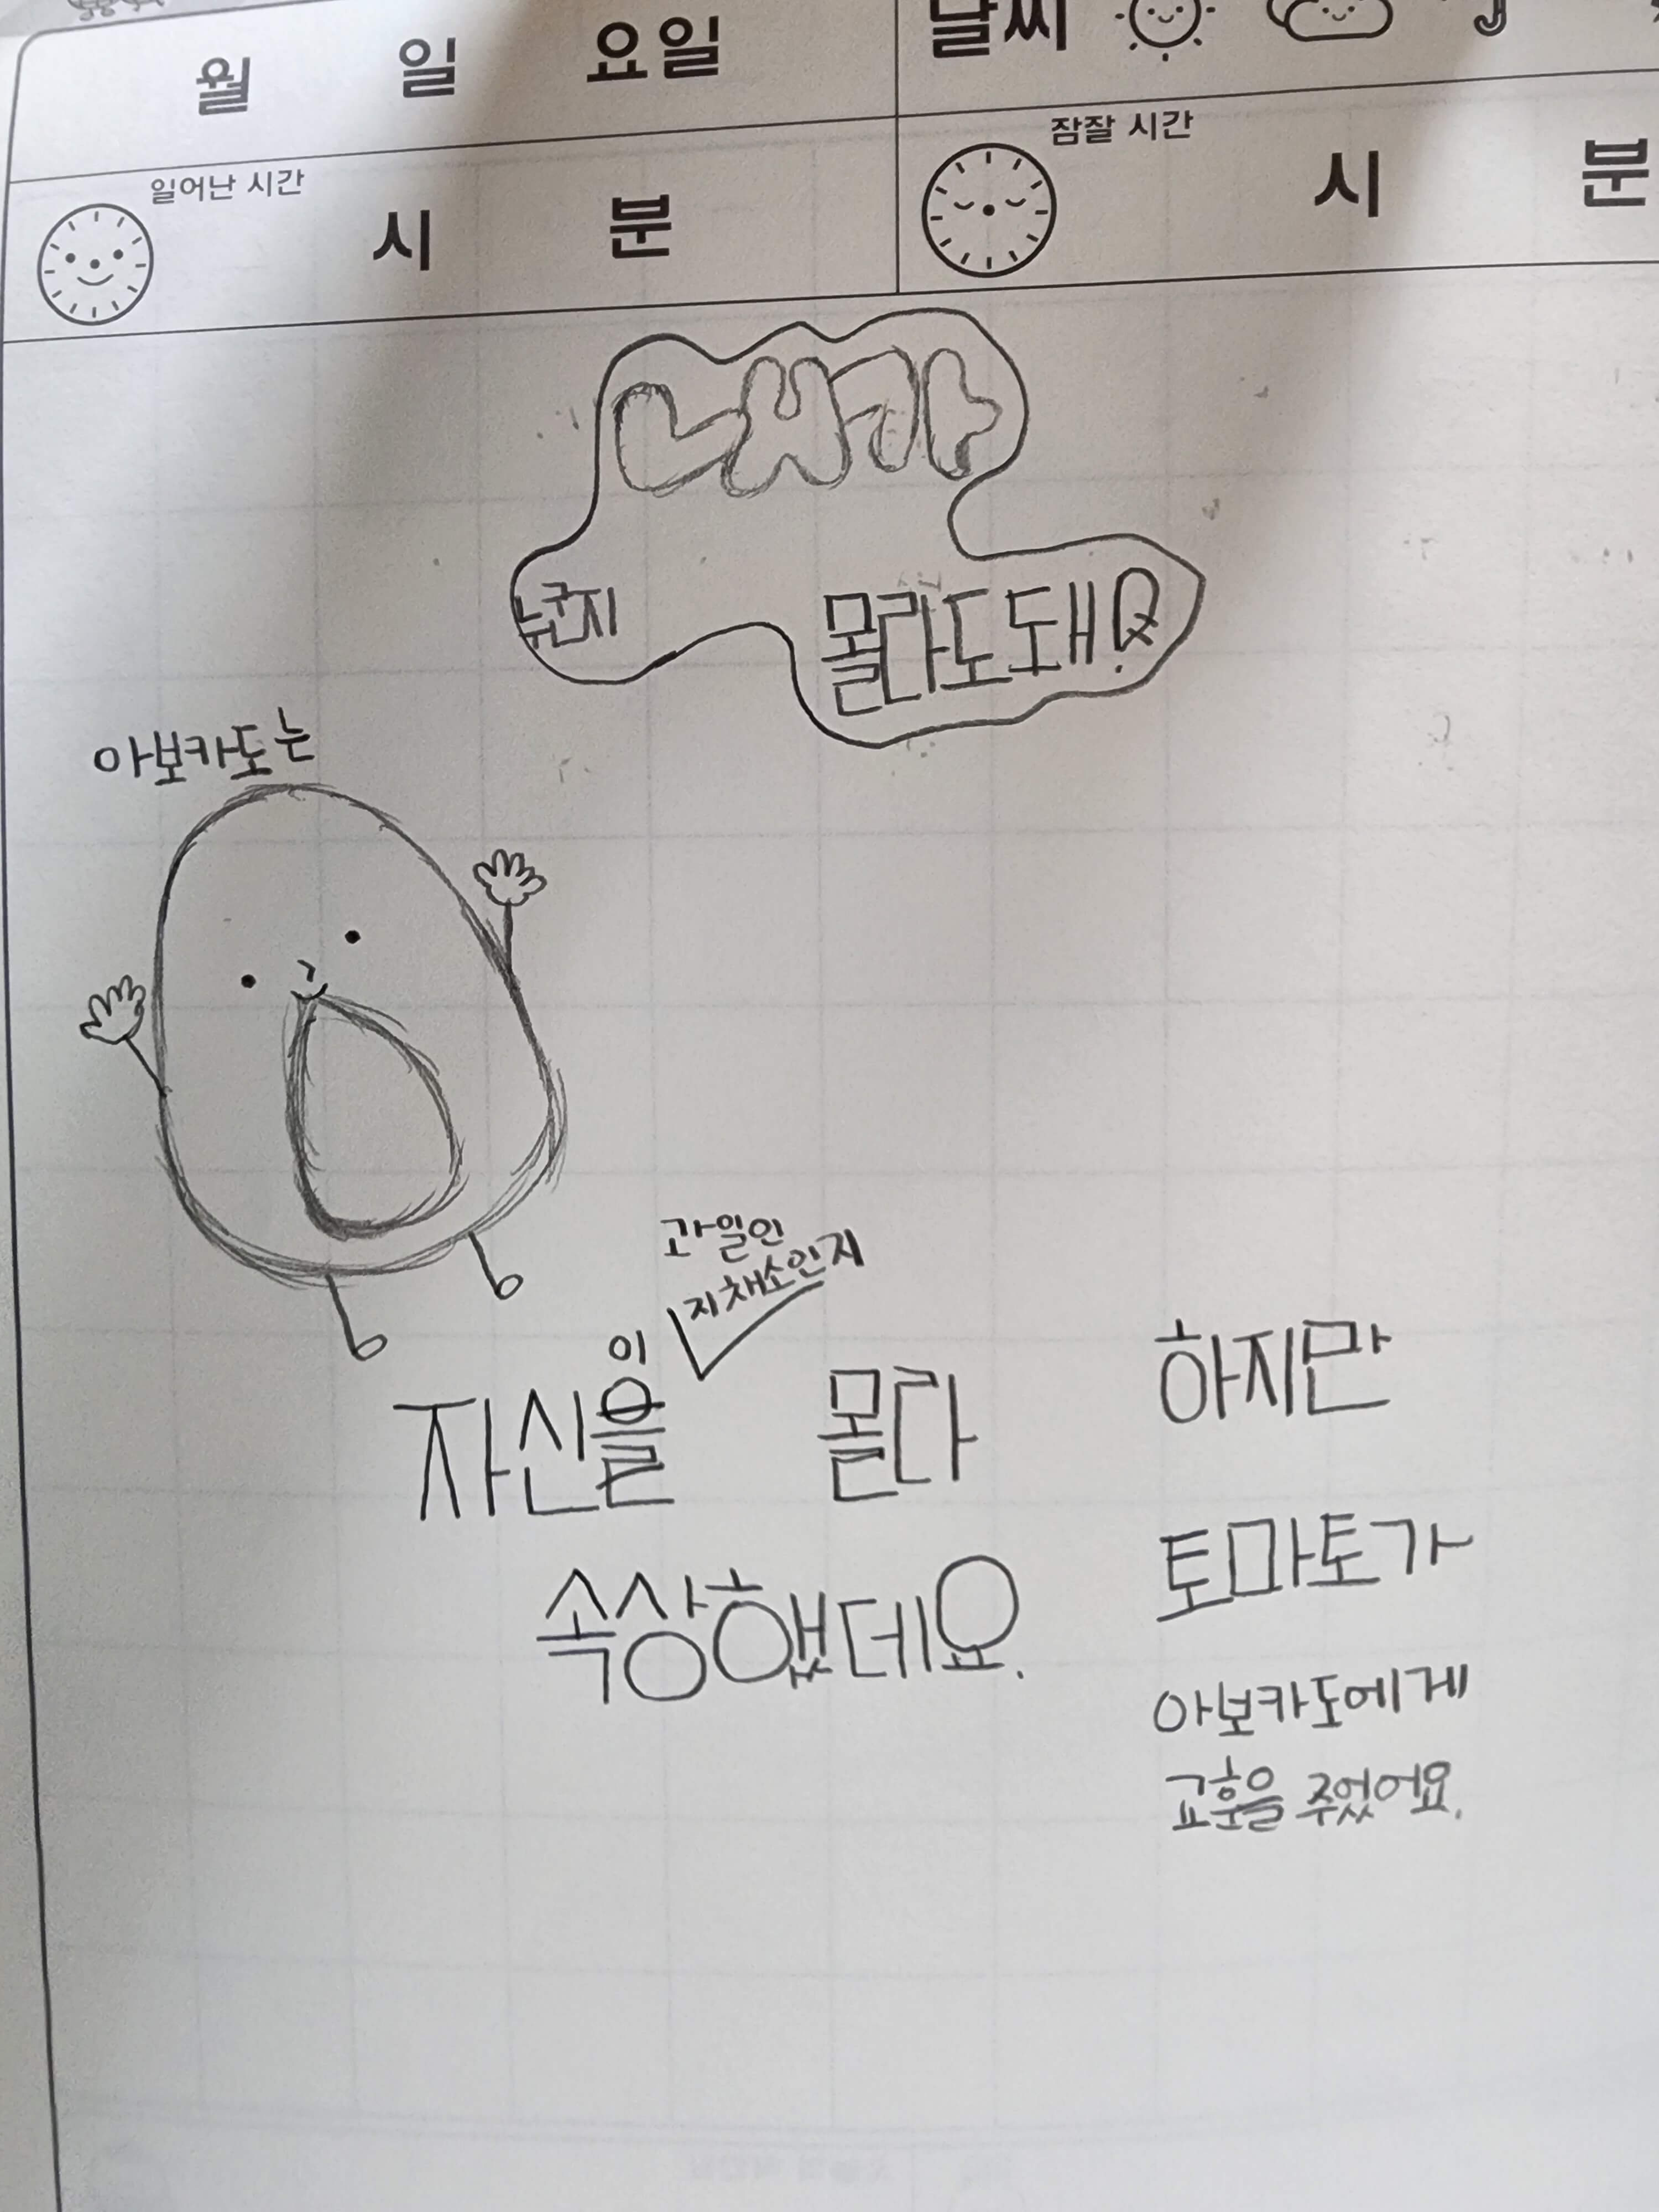 월 일 요일
날씨
일어난 시간 시 분
잠잘 시간 시 분
내가
누군지 몰라도돼
아보카도는
과일인
지채소인지
이
자신을 몰라
속상했데요.
하지만
토마토가
아보카도에게
교훈을 주었어요.